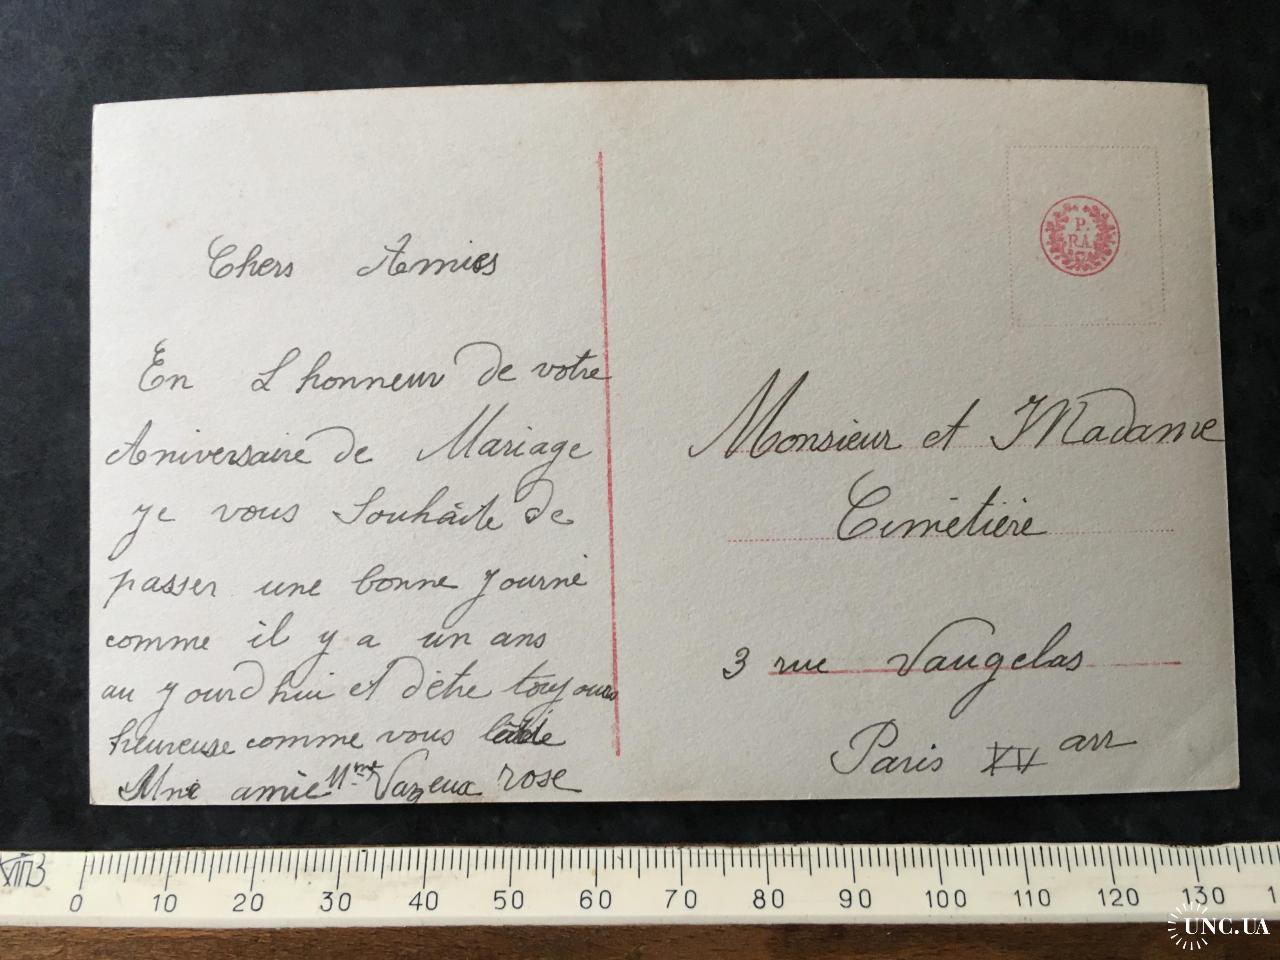 Chers Amies
En L honneur de votre
Aniversaire de Mariage
je vous Souhaite de
passer une bonne journé
comme il y a un ans
au yourdhui et d'être toujours
heureuse comme vous
Une amie Mme Vazeux rose
P.
R.A.
Monsieur et Madame
Cimetière
3 rue Vaugelas
Paris XV arr
0 10 20 30 40 50 60 70 80 90 100 110 120 130
UNC.UA